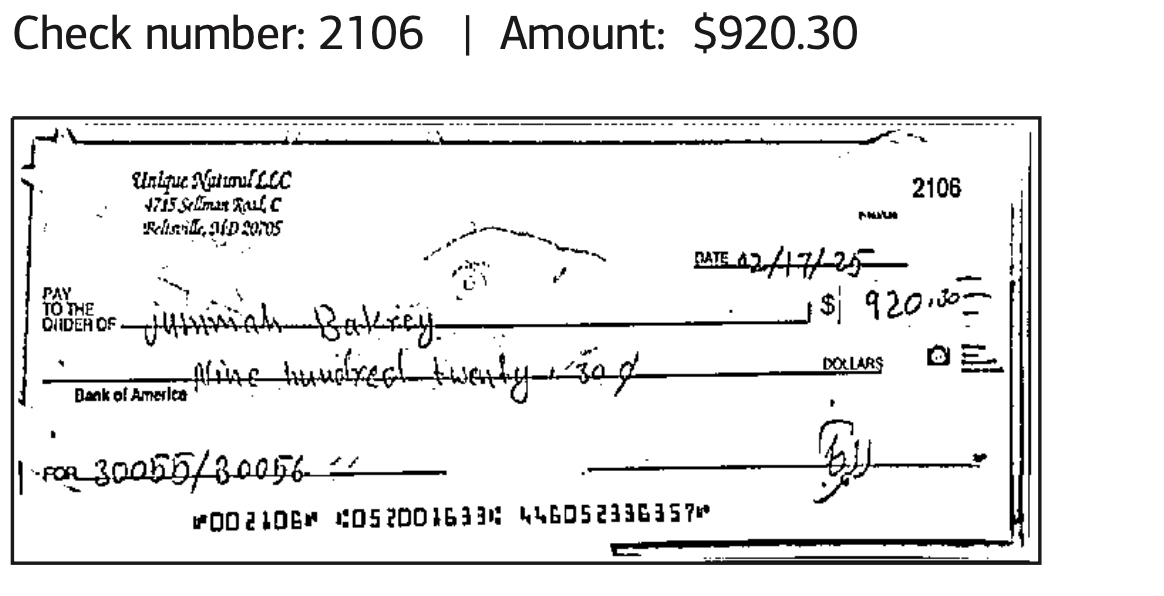 Check number: 2106 | Amount: $920.30
Unique Natural LLC
4715 Sellman Road, C
Beltsville, MD 20705
2106
DATE 12/17/25
PAY
TO THE
ORDER OF Jummiah Bakrey $ 920.30
Nine hundred twenty , 30 ¢ DOLLARS
Bank of America
FOR 30055/30056
⑈002106⑈ ⑆052001633⑆ 446052336357⑈